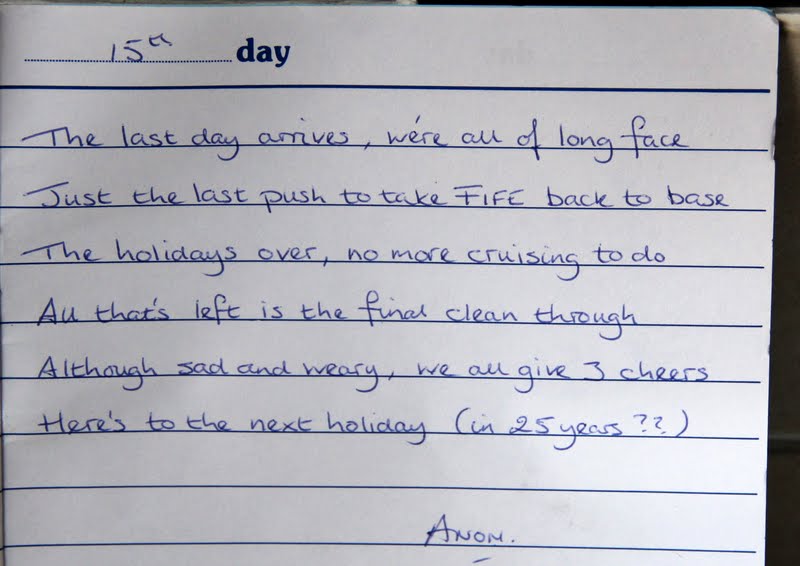 15th day
The last day arrives, we're all of long face
Just the last push to take FIFE back to base
The holidays over, no more cruising to do
All that's left is the final clean through
Although sad and weary, we all give 3 cheers
Here's to the next holiday (in 25 years ??)
ANON.